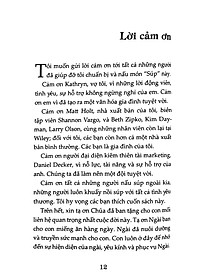 Lời cảm ơn
Tôi muốn gửi lời cám ơn tới tất cả những người
đã giúp đỡ tôi chuẩn bị và nấu món "Súp" này.
Cám ơn Kathryn, vợ tôi, vì những lời động viên,
tình yêu, sự hỗ trợ không ngừng nghỉ của em. Cám
ơn em vì đã tạo ra một văn hóa gia đình tuyệt vời.
Cám ơn Matt Holt, nhà xuất bản của tôi, biên
tập viên Shannon Vargo, và Beth Zipko, Kim Day-
man, Larry Olson, cùng những nhân viên còn lại tại
Wiley; đối với tôi, các bạn còn hơn cả một nhà xuất
bản bình thường. Các bạn là gia đình của tôi.
Cám ơn người đại diện kiêm thiên tài marketing,
Daniel Decker, vì nỗ lực, tài năng và sự hỗ trợ của
anh. Chúng ta đã làm nên một đội tuyệt vời.
Cám ơn tất cả những người nấu súp ngoài kia,
những người luôn khuấy nồi súp với tất cả tình yêu
thương. Tôi hy vọng các bạn thích cuốn sách này.
Trên hết, xin tạ ơn Chúa đã ban tặng cho con mối
liên hệ quan trọng nhất cuộc đời này. Tạ ơn Ngài ban
cho con miếng ăn hàng ngày. Ngài đã nuôi dưỡng
và truyền sức mạnh cho con. Con luôn ở đây để nhớ
đến sự hiện diện của Ngài, yêu kính và phục vụ Ngài
12